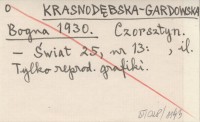 O KRASNODĘBSKA-GARDOWSKA
Bogna 1930. Czorsztyn.
— Świat 25, nr 13: , il.
Tylko reprod. grafiki.